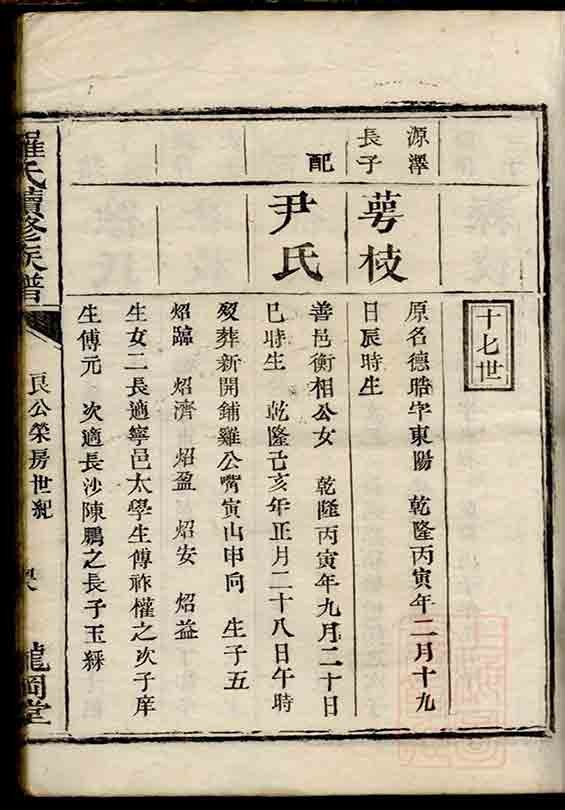 十七世
源澤
長子
萼枝
原名德晧字東陽 乾隆丙寅年二月十九
日辰時生
配
尹氏
善邑衡相公女 乾隆丙寅年九月二十日
巳時生 乾隆己亥年正月二十八日午時
歿葬新開鋪雞公嘴寅山申向 生子五
炤 炤濟 炤盈 炤安 炤益
生女二長適寧邑太學生傅祚權之次子庠
生傅元 次適長沙陳鵬之長子玉
羅氏續修族譜
良公榮房世紀
龍岡堂